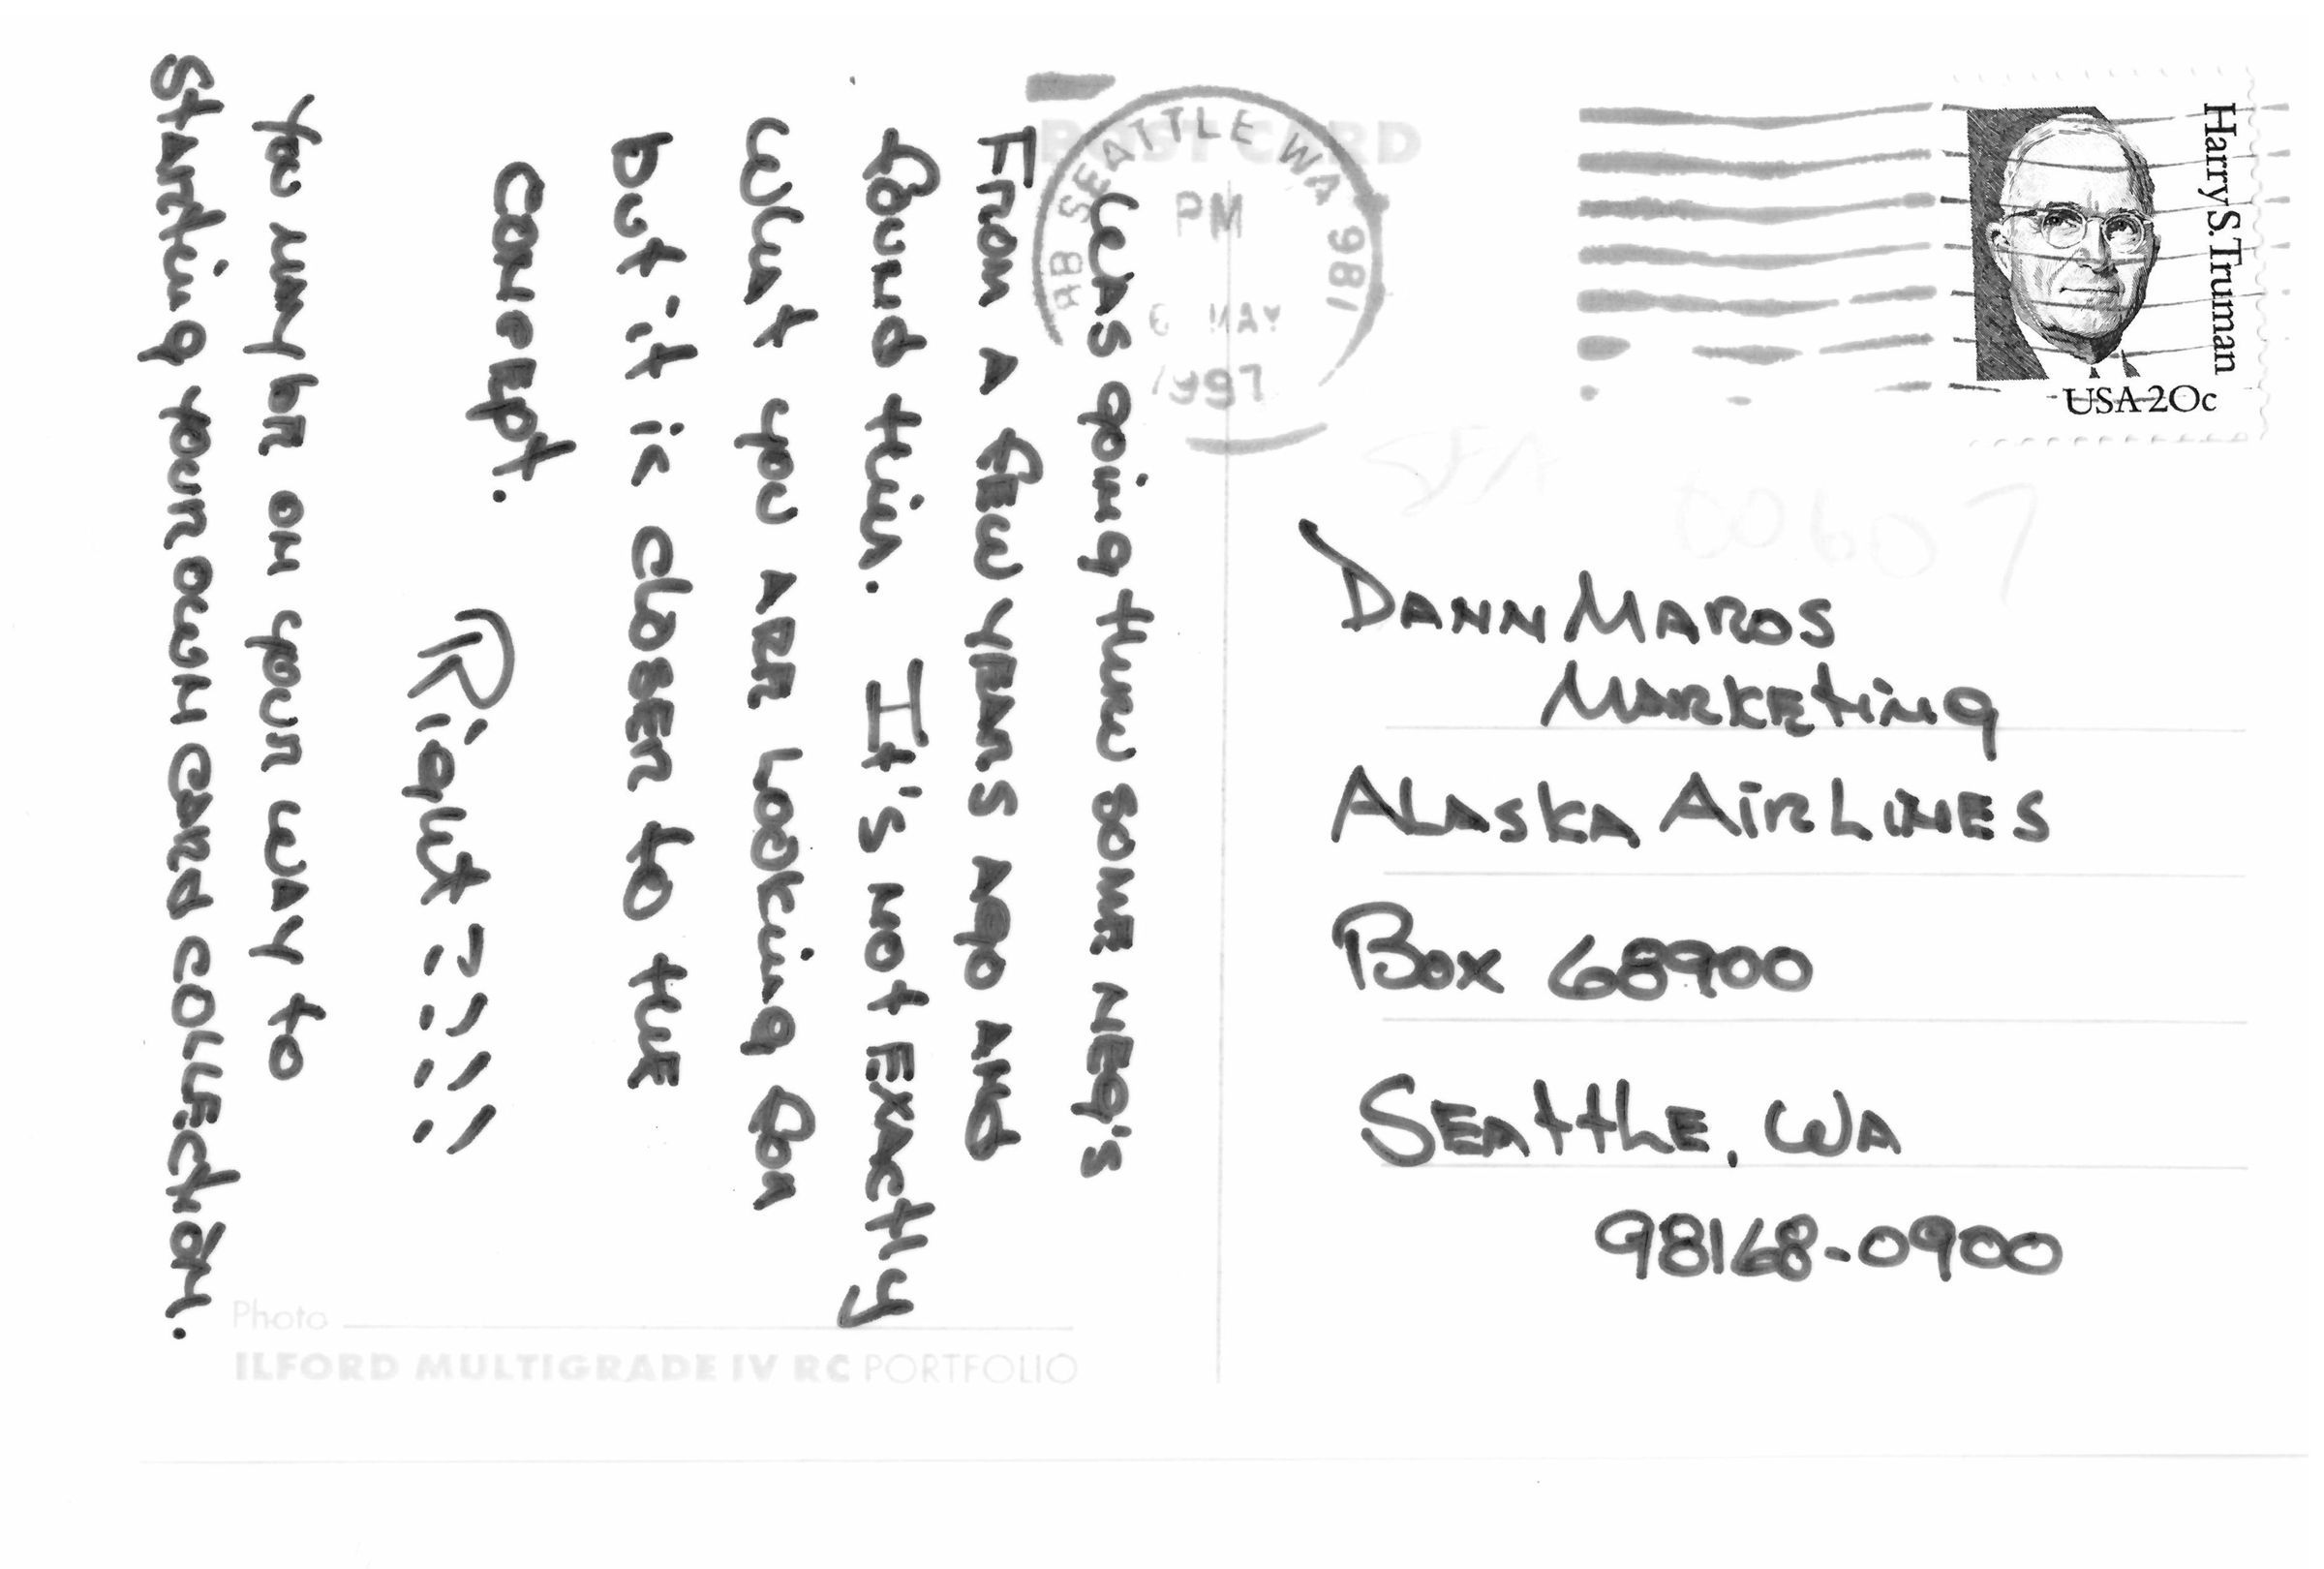 POST CARD
AB SEATTLE WA 981
PM
6 MAY
1997
Harry S. Truman
USA 20c
Was going thru some neg's
From a few years ago and
found this. It's not exactly
what you are looking for
but it is closer to the
concept.
Right?!!!
You may be on your way to
starting your own card collection.
Dann Maros
Marketing
Alaska Airlines
Box 68900
Seattle, WA
98168-0900
Photo
ILFORD MULTIGRADE IV RC PORTFOLIO